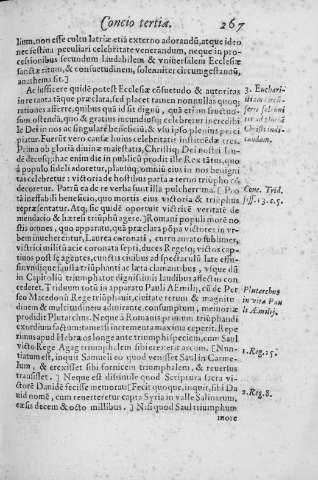 Concio tertia. 267
lium, non esse cultu latriæ etiã externo adorandũ, atque ideo
nec festiua peculiari celebritate venerandum, neque in pro-
cessionibus secundum laudabilem & vniuersalem Ecclesiæ
sanctæ ritum, & consuetudinem, solenniter circumgestandũ,
anathema sit.]
Ac sufficere quidẽ potest Ecclesiæ cõsuetudo & autoritas
in re tanta tãque præclara, sed placet tamen nonnullas quoq;
rationes afferre, quibus quã id sit dignũ, quã etiam fructuo-
sum ostendã, quo & gratius incundiusq; celebretur incredibi
le Dei in nos ac singulare beneficiũ, & vsu ipso plenius perci
piatur. Fuerũt vero causæ huius celebritatis instituẽdæ tres.
Prima ob gloriã diuinæ maiestatis, Christiq; Dei nostri lau-
dẽ decusq; hac enim die in publicũ prodit ille Rex tãtus, quo
à populo fideli adoretur, plausuq; omniũ eius in nos benigni
tas celebretur: victoria de hostibus parta æterno triũpho
decoretur. Patrũ ea de re verba sunt illa pulcherrima. [Pro
tã ineffabili beneficio, quo mortis eius victoria & triũphus
repræsentatur. Atq; sic quidẽ oportuit victricẽ veritatẽ de
mendacio & hæresi triũphũ agere.] Romani populi more no
stis omnes, quo apparatu, quã præclara põpa victores in vr-
bem inueherentur, Laurea coronati, curru aurato sublimes,
victrici militũ acie coronati septi, duces Regesq; victos cap-
tiuos post se agẽtes, cunctis ciuibus ad spectaculũ late effu-
sis
in Capitoliũ triumphator dignissimis laudibus affectus con
cederet. Triduum totũ in apparatu Pauli AEmilij, cũ de Per
seo Macedonũ Rege triũphauit, ciuitate rerum & magnitu
dinem & multitudinem admirante, consumptum, memoriæ
prodidit Plutarchus. Neque à Romanis primum triũphandi
exordium factum tametsi incrementa maxima ceperit. Repe
rimus apud Hebræos longe ante triumphi speciem, cum Saul
victo Rege Agag triumphalem sibi erexerit arcum. [Nun-
tiatum est, inquit Samueli eo quod venisset Saul in Carme-
lum, & erexisset sibi fornicem triumphalem, & reuersus
transisset.] Neque est dissimile quod Scriptura sacra vi-
ctorẽ Dauidẽ fecisse memorat: [Fecit quoque, inquit, sibi Da
uid nomẽ, cum reuerteretur capta Syria in valle Salinarum,
cæsis decem & octo millibus.] Nisi quod Saul triumphum
more
3. Euchari-
Christi
Conc. Trid.
sess. 13. c. 5.
Plutarchus
in vita Pau
li Æmilij.
1. Reg. 15.
2. Reg. 8.